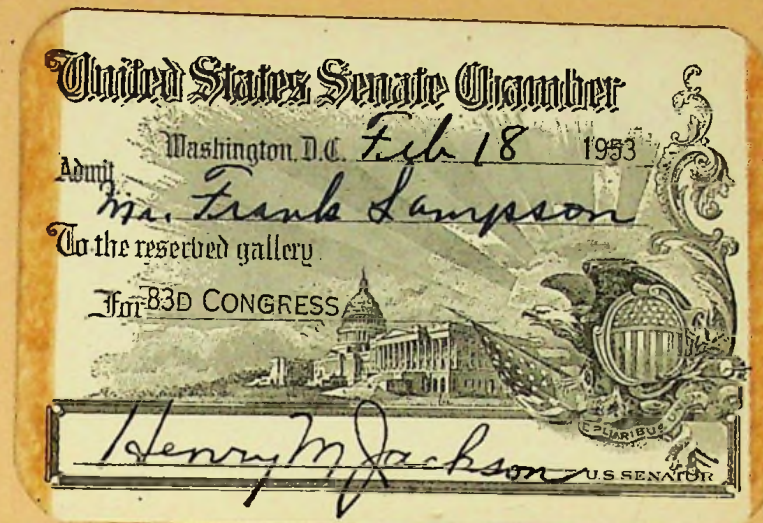 United States Senate Chamber
Washington, D.C. Feb 18 1953
Admit
Mr. Frank Sampson
To the reserved gallery
For 83D CONGRESS
E PLURIBUS UNUM
Henry M Jackson U.S. SENATOR